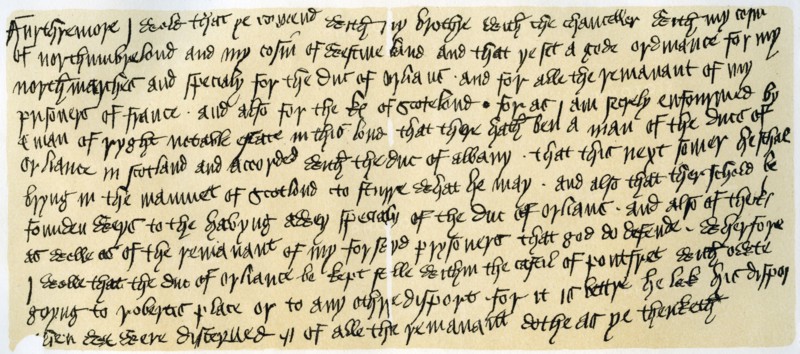 Furthremore I wold that ye comend with my brothe with the chanceller with my cosin
of northumbrelond and my cosin of westmerland and that ye set a gode ordinance for my
northmarches and specialy for the duc of orlians . and for alle the remanant of my
prisoners of france . and also for the kyng of Scotelond . for as I am secrely enfourmed by
a man of ryght notable estate in this lond that there hath ben a man of the ducs of
Orliance in scotland and accorded with the duc of albany . that this next somer he schal
bryng in the mammet of Scotlond to sturre what he may . and also that ther schold be
founden weys to the havyng awey specialy of the duc of orlians . and also of the
as welle as of the remanant of my forseyd prysoners that god do defende . wherfore
I wolle that the duc of orliance be kept stille within the castil of pontfret with owte
goyng to robertis place or to any othre disport . for it is bettre he lak his dispor
then we were disceyved . of alle the remanant dothe as ye thenketh